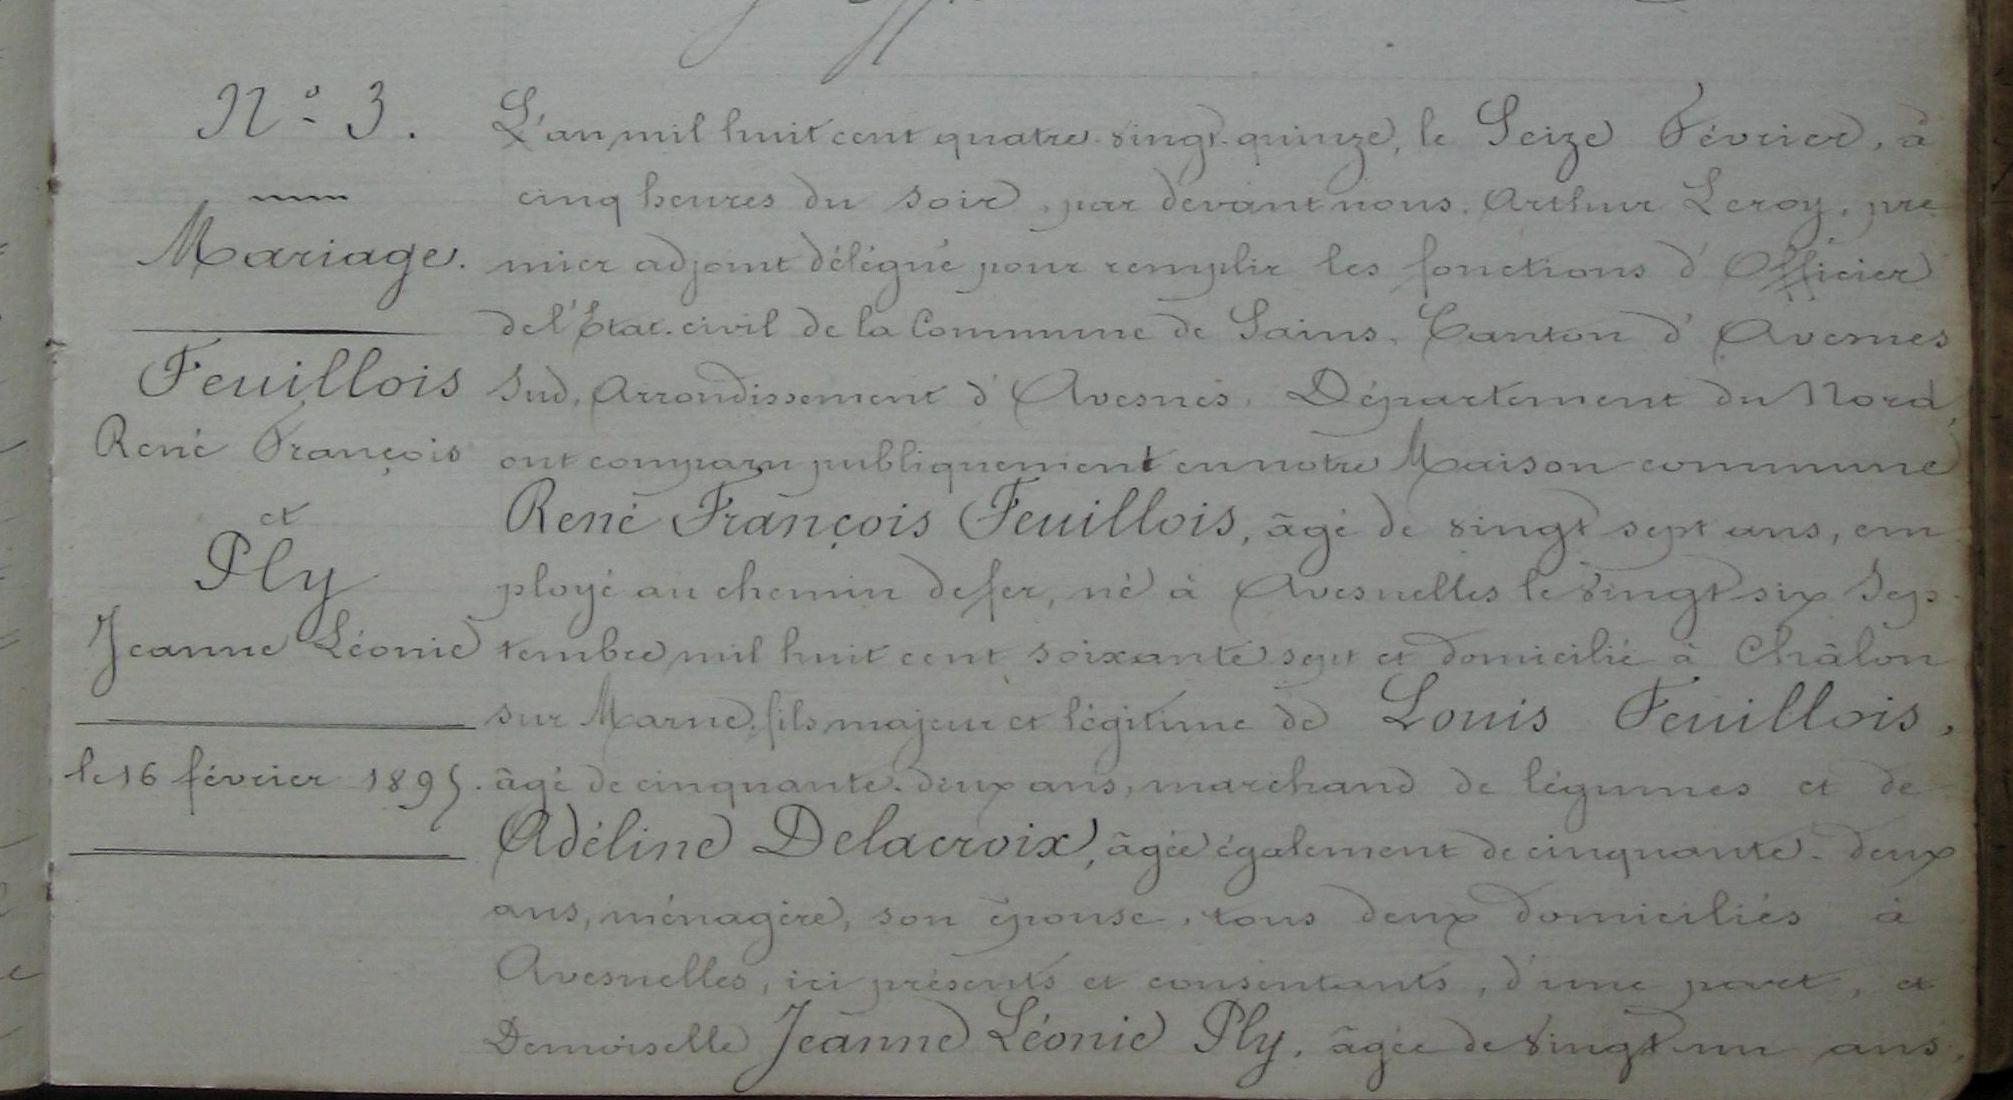 N° 3.
Mariage.
Feuillois
René François
et
Ply
Jeanne Léonie
le 16 février 1895.
L'an mil huit cent quatre-vingt-quinze, le Seize Février, à
cinq heures du soir, par devant nous, Arthur Leroy, pre
mier adjoint délégué pour remplir les fonctions d'Officier
de l'Etat-civil de la Commune de Sains, Canton d'Avesnes
Sud, Arrondissement d'Avesnes, Département du Nord,
ont comparu publiquement en notre Maison commune
René François Feuillois, âgé de vingt sept ans, em
ployé au chemin de fer, né à Avesnelles le vingt six Sep-
tembre mil huit cent soixante sept et domicilié à Châlon
sur Marne, fils majeur et légitime de Louis Feuillois,
âgé de cinquante-deux ans, marchand de légumes et de
Adéline Delacroix, âgée également de cinquante-deux
ans, ménagère, son épouse, tous deux domiciliés à
Avesnelles, ici présents et consentants, d'une part, et
Demoiselle Jeanne Léonie Ply, âgée de vingt-un ans,